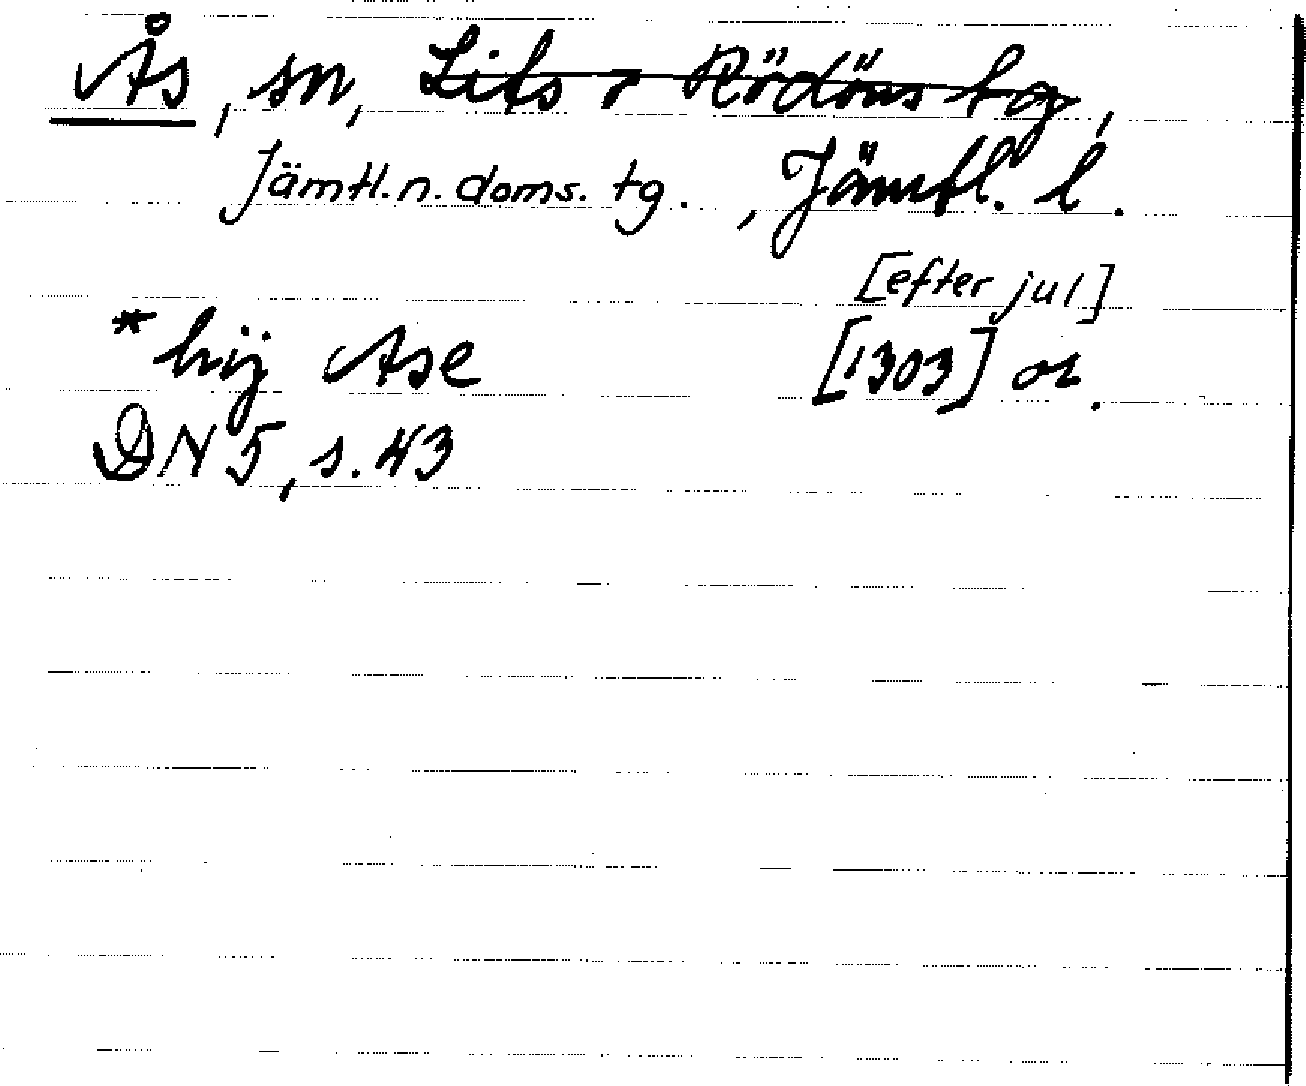 Ås, sn, Lits o Rödöns tg,
Jämtl. n. doms. tg., Jämtl. l.
[efter jul]
* hij Ase [1303] or.
DN 5, s. 43